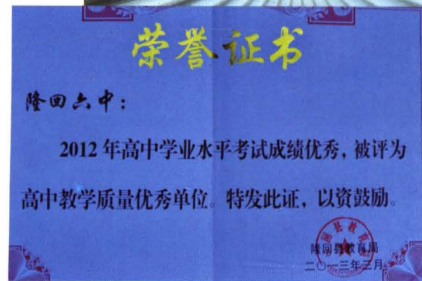 荣誉证书
隆回六中：
2012年高中学业水平考试成绩优秀，被评为
高中教学质量优秀单位。特发此证，以资鼓励。
隆回县教育局
二〇一三年三月